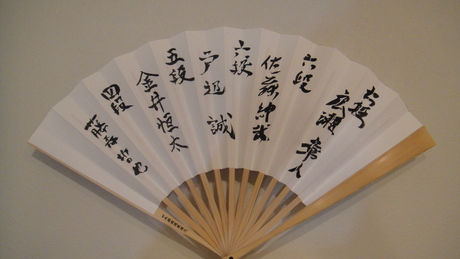 七段
広瀬章人
六段
佐藤紳哉
六段
戸辺誠
五段
金井恒太
四段
藤森哲也